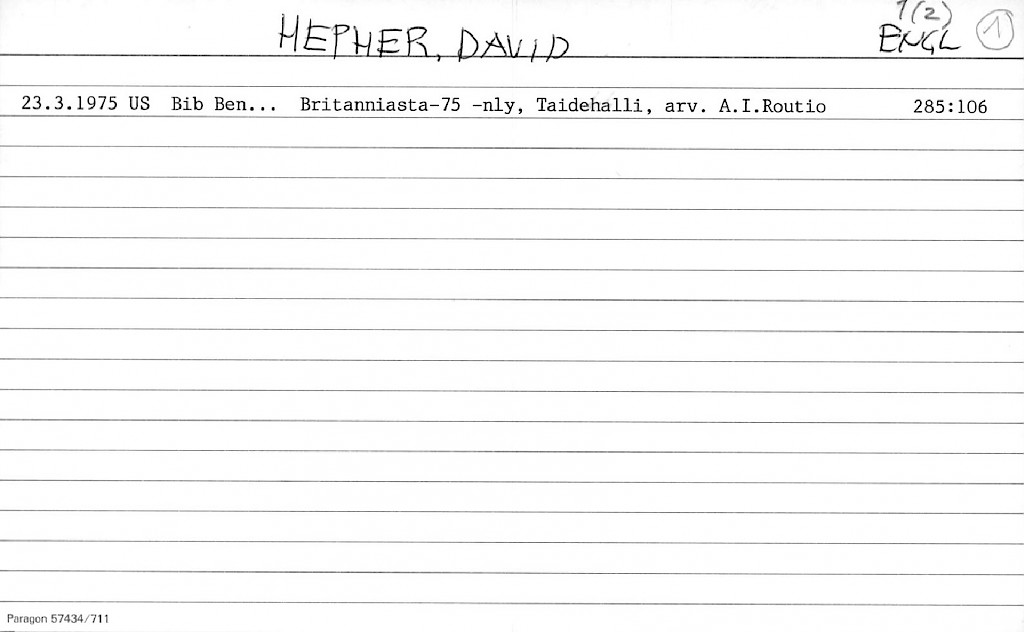 1(2)
HEPHER, DAVID ENGL 1
23.3.1975 US Bib Ben... Britanniasta-75 -nly, Taidehalli, arv. A.I.Routio 285:106
Paragon 57434/711